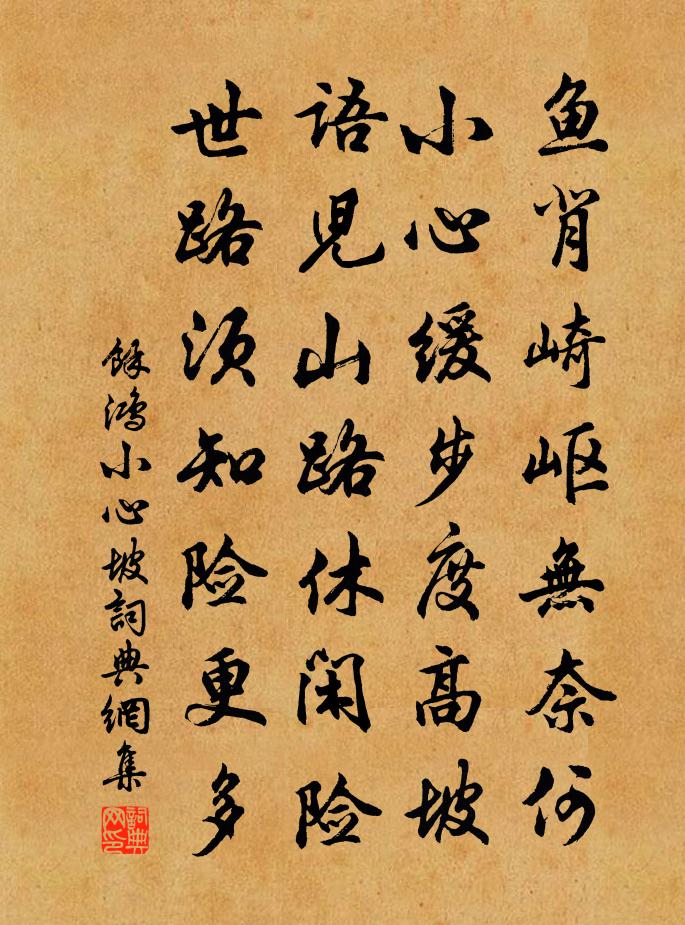 鱼背崎岖無奈何
小心缓步度高坡
語児山路休闲险
世路须知险更多
馀鸿小心坡詞典網集
詞典网印